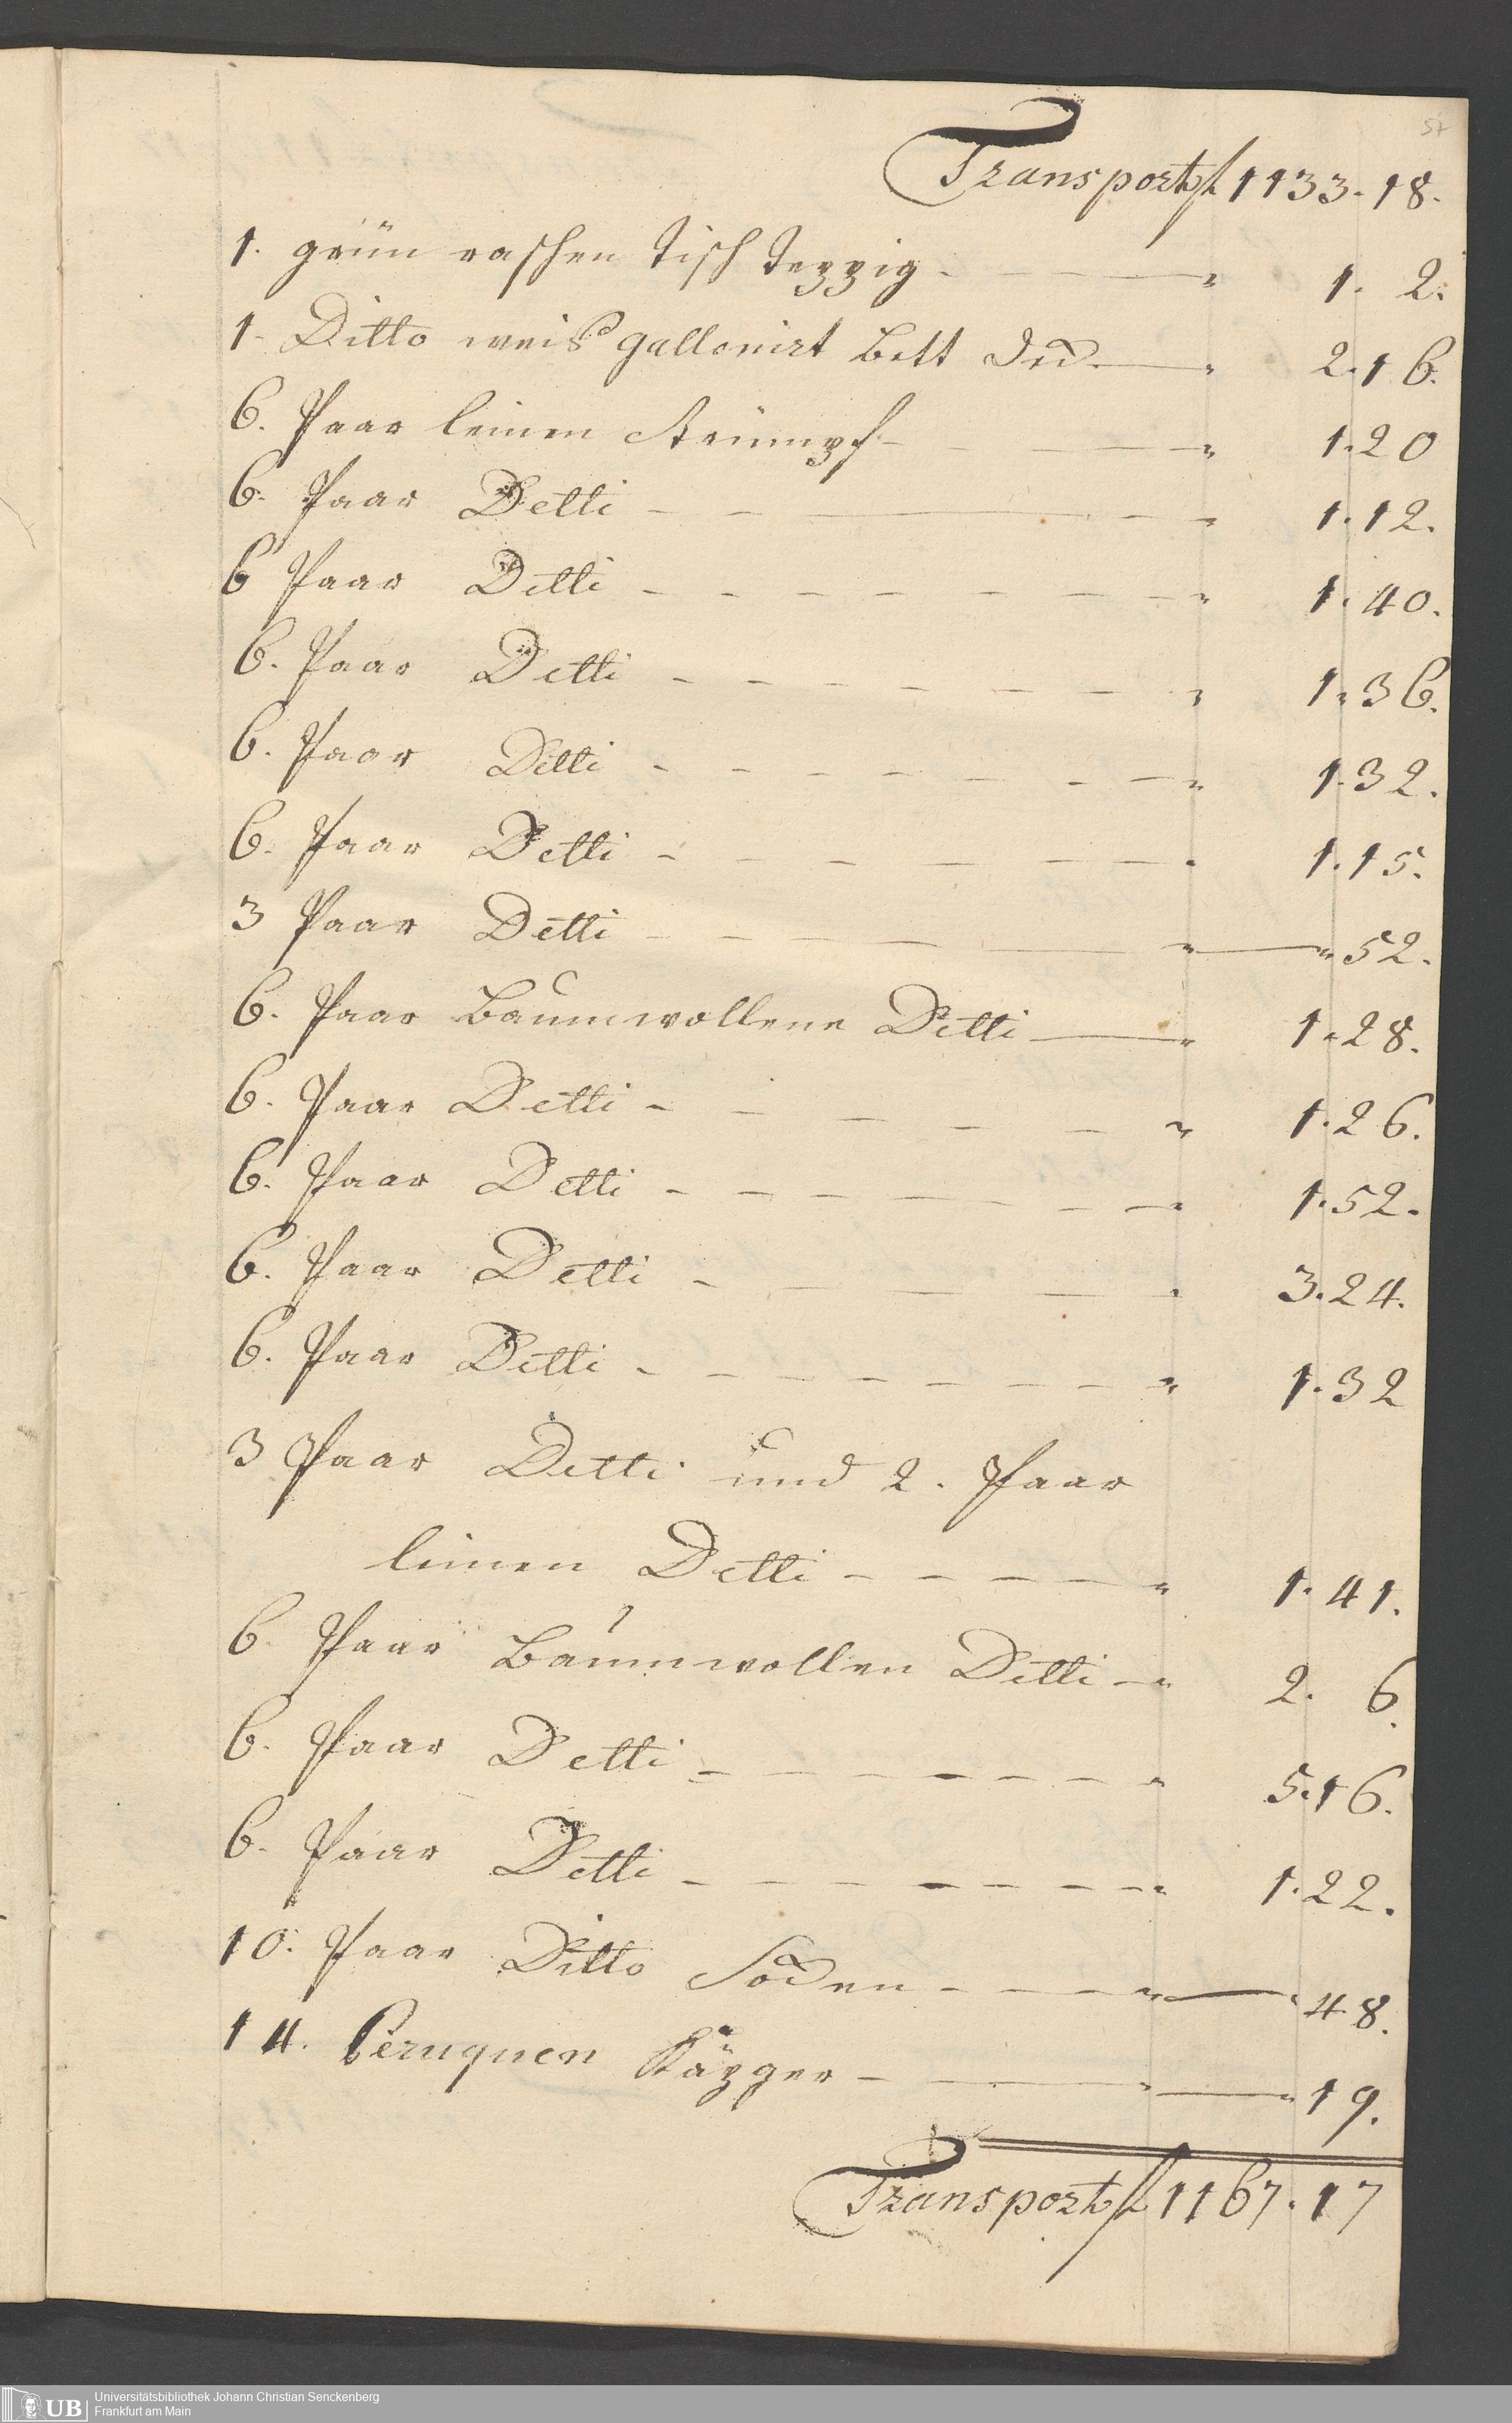 57
Transport fl 1133. 18.
1. grün raschen Tisch Teppig - - - " 1. 2.
1. Ditto weis gallonirt Bett Deck - " 2. 16.
6. Paar leinen Strümpf - - - " 1. 20
6. Paar Detti - - - " 1. 12.
6 Paar Detti - - - " 1. 40.
6. Paar Detti - - - " 1. 36.
6. Paar Detti - - - " 1. 32.
6. Paar Detti - - - " 1. 15.
3 Paar Detti - - - " — " 52.
6. Paar Baumwollene Detti - " 1. 28.
6. Paar Detti - - - " 1. 26.
6. Paar Detti - - - " 1. 52.
6. Paar Detti - - - " 3. 24.
6. Paar Detti - - - " 1. 32
3 Paar Detti und 2. Paar
leinen Detti - - - " 1. 41.
6. Paar Baumwollen Detti - " 2. 6.
6. Paar Detti - - - " 5. 16.
6. Paar Detti - - - " 1. 22.
10. Paar Ditto Socken - - - " — " 48.
14. Peruquen Käpger - - - " — " 19.
Transport fl 1167. 17
UB
Universitätsbibliothek Johann Christian Senckenberg
Frankfurt am Main